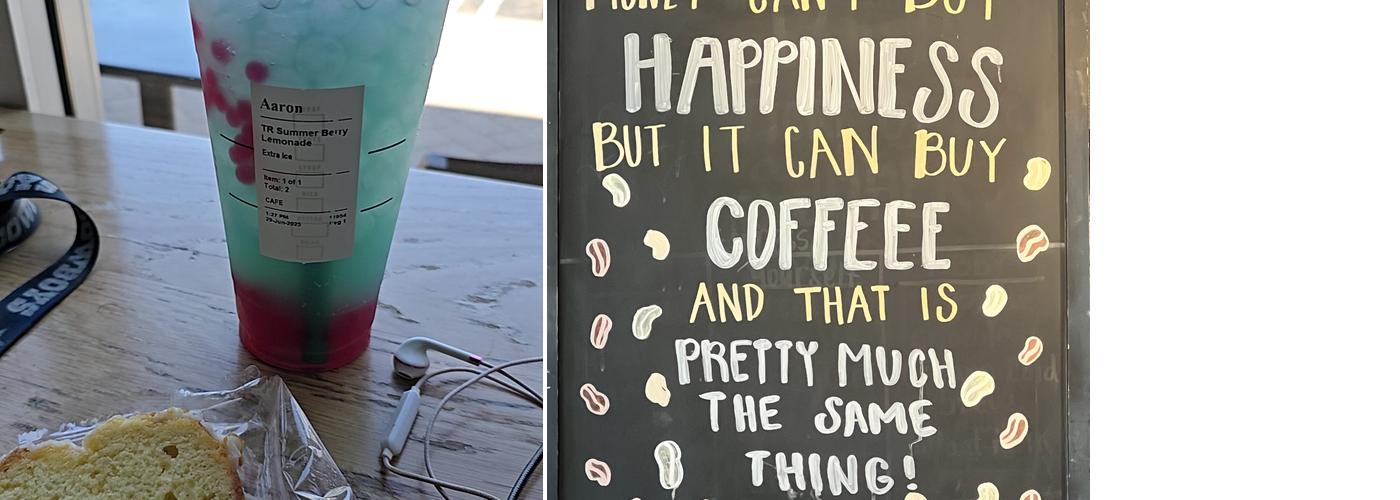 Aaron
TR Summer Berry
Lemonade
Extra Ice
Item: 1 of 1
Total: 2
CAFE
1:27 PM
29-Jun-2025
MONEY CAN'T BUY
HAPPINESS
BUT IT CAN BUY
COFFEEE
AND THAT IS
PRETTY MUCH
THE SAME
THING!